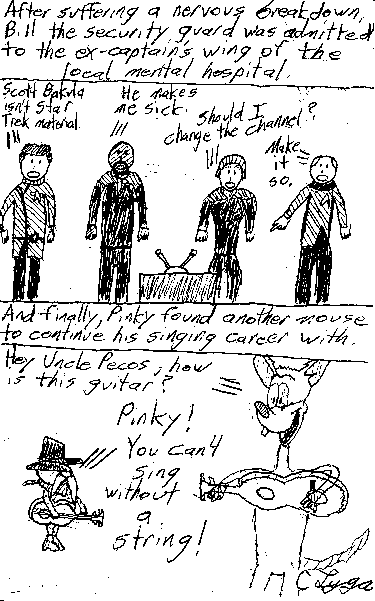 After suffering a nervous breakdown,
Bill the security guard was admitted
to the ex-captain's wing of the
local mental hospital.
Scott Bakula
isn't Star
Trek material.
He makes
me sick.
Should I
change the channel?
Make
it
so.
And finally, Pinky found another mouse
to continue his singing career with.
Hey Uncle Pecos, how
is this guitar?
Pinky!
You can't
sing
without
a
string!